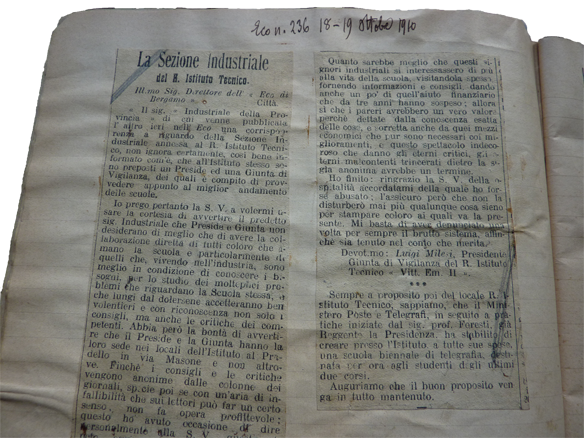 Eco n. 236 18-19 ottobre 1910
La Sezione industriale
del R. Istituto Tecnico.
Ill.mo Sig. Direttore dell' « Eco di
Bergamo ».
Città.
« Il sig. « Industriale della Pro
vincia » di cui venne pubblicata
l'altro ieri nell'Eco una corrispon
denza a riguardo della Sezione In
dustriale annessa al R. Istituto Tecni
co, non ignora certamente, così bene in
formato com'è, che all'Istituto stesso so
no preposti un Preside ed una Giunta di
Vigilanza, dei quali è compito di provve
dere appunto al miglior andamento
delle scuole.
Io prego pertanto la S. V. a volermi u
sare la cortesia di avvertire il predetto
sig. Industriale che Preside e Giunta non
desiderano di meglio che di avere la col
laborazione diretta di tutti coloro che a
mano la scuola e particolarmente di
quelli che, vivendo nell'industria, sono
meglio in condizione di conoscere i bi
sogni, per lo studio dei molteplici pro
blemi che riguardano la Scuola stessa, e
che lungi dal dolersene accetteranno ben
volentieri e con riconoscenza non solo i
consigli, ma anche le critiche dei com
petenti. Abbia però la bontà di avverti
re che il Preside e la Giunta hanno la
loro sede nei locali dell'Istituto al Pra
dello in via Masone e non altro
ve. Finchè i consigli e le critiche
vengono anonime dalle colonne dei
giornali, specie poi se con un'aria di
infallibilità che sui lettori può far un certo
senso, non fa opera profittevole;
questo ho avuto occasione di dire
personalmente alla S. V.
Quanto sarebbe meglio che questi si
gnori industriali si interessassero di più
alla vita della scuola, visitandola spesso,
fornendo informazioni e consigli, dando
anche un po' di quell'aiuto finanziario
che da tre anni hanno sospeso; allora
sì che i pareri avrebbero un vero valore
perchè dettate dalla conoscenza esatta
delle cose, e sorretta anche da quei mezzi
economici che pur sono necessari coi mi
glioramenti, e questo spettacolo indeco
roso che danno gli eterni critici, gli e
terni malcontenti trincerati dietro la si
gla anonima avrebbe un termine.
Ho finito: ringrazio la S. V. della o
spitalità accordatami della quale ho for
se abusato; l'assicuro però che non la
disturberò mai più qualunque cosa sigou
per stampare coloro ai quali va la pre
sente. Mi basta di aver denunciato una
volta per sempre il brutto sistema, affin
chè sia tenuto nel conto che merita.
Devot.mo: Luigi Milesi, Presidente
Giunta di Vigilanza del R. Istituto
Tecnico « Vitt. Em. II ».
***
Sempre a proposito poi del locale R. I
stituto Tecnico, sappiamo, che il Mini
stero Poste e Telegrafi, in seguito a pra
tiche iniziate dal sig. prof. Foresti,
Reggente la Presidenza, ha stabilito di
creare presso l'Istituto a tutte sue spese,
una scuola biennale di telegrafia, desti
nata per ora agli studenti degli ultimi
due corsi.
Auguriamo che il buon proposito ven
ga in tutto mantenuto.